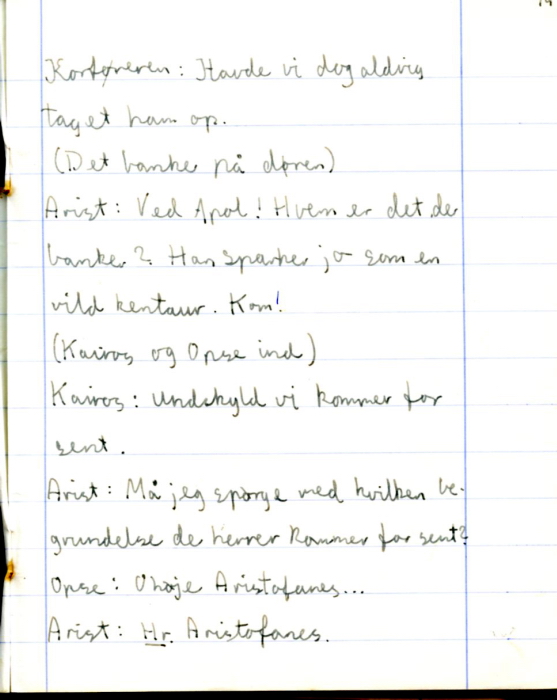 Korføreren: Havde vi dog aldrig
taget ham op.
(Det banke på døren)
Arist: Ved Apol! Hvem er det de
banker? Han sparker jo som en
vild kentaur. Kom!
(Kairos og Opse ind)
Kairos: Undskyld vi kommer for
sent.
Arist: Må jeg spørge med hvilken be-
grundelse de herrer kommer for sent?
Opse: O høje Aristofanes...
Arist: Hr. Aristofanes.